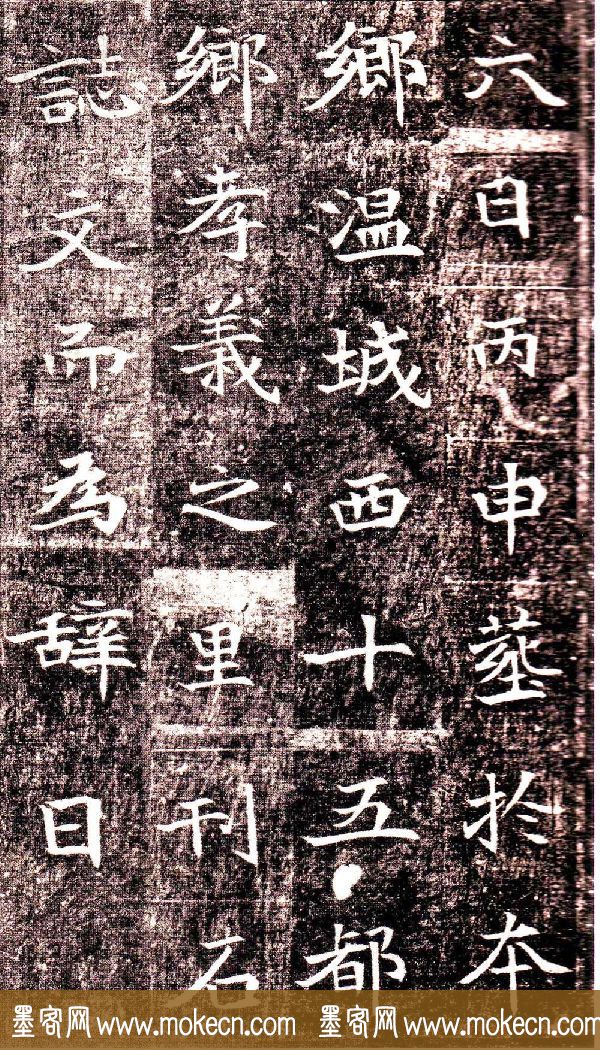 六日丙申葬於本
鄉温城西十五都
鄉孝義之里刊石
誌文而為辞曰
墨客网 www.mokecn.com 墨客网 www.mokecn.com